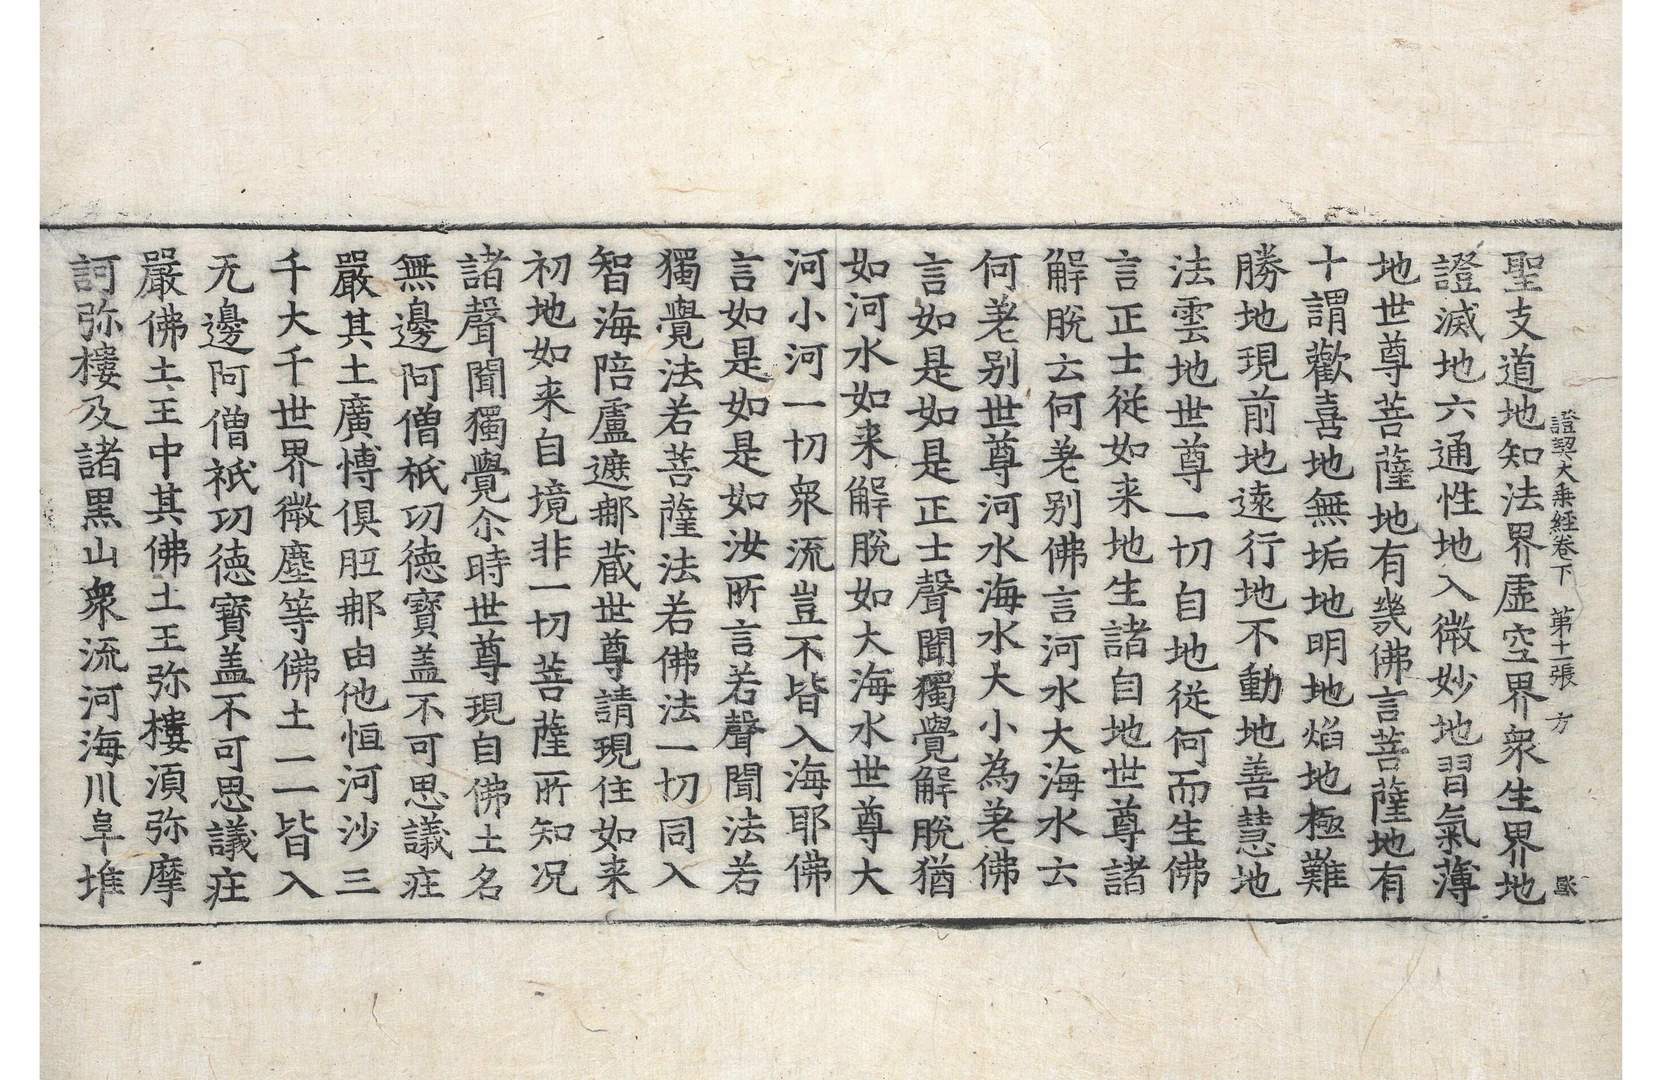 證契大乘經卷下 第十一張 方
聖支道地知法界虛空界衆生界地
證滅地六通性地入微妙地習氣薄
地世尊菩薩地有幾佛言菩薩地有
十謂歡喜地無垢地明地焰地極難
勝地現前地遠行地不動地善慧地
法雲地世尊一切自地從何而生佛
言正士從如来地生諸自地世尊諸
解脫云何差别佛言河水大海水云
何差别世尊河水海水大小為差佛
言如是如是正士聲聞獨覺解脫猶
如河水如来解脫如大海水世尊大
河小河一切衆流豈不皆入海耶佛
言如是如是如汝所言若聲聞法若
獨覺法若菩薩法若佛法一切同入
智海陪盧遮那藏世尊請現住如来
初地如来自境非一切菩薩所知况
諸聲聞獨覺尒時世尊現自佛土名
無邊阿僧祇功德寶盖不可思議莊
嚴其土廣愽俱胝那由他恒河沙三
千大千世界微塵等佛土一一皆入
无邊阿僧祇功德寶盖不可思議莊
嚴佛土王中其佛土王弥樓湏弥摩
訶弥樓及諸黑山衆流河海川阜堆